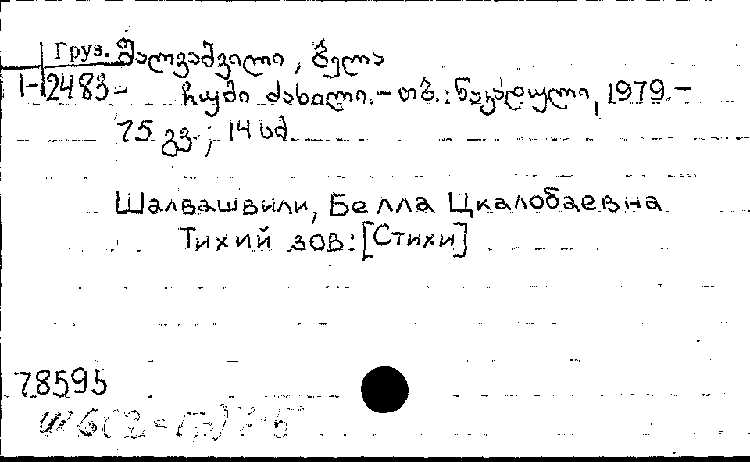 Груз. შალვაშვილი, ბელა
1-2483- ჩუმი ძახილი.-თბ.: ნაკადული, 1979.-
75 გვ.; 14 სმ
Шалвашвили, Белла Цкалобаевна
Тихий зов: [Стихи]
78595